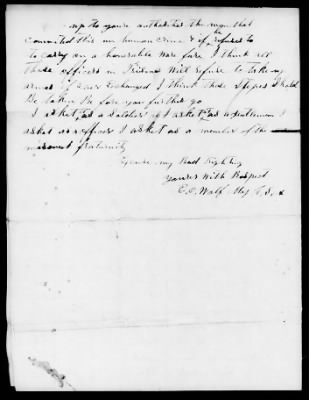 up to youre authorites the man that
Committed this un human crime & if he refuses to
to carry on a honorable war fare I think
those officers in Prison will refuse to take up
armes if ever Exchanged I think those Steps Should
be taken Be fore you further go
I asket as a Soldier I asket as a gentlemen I
asket as a officer I asket as a member of the
masonest fraternity
Excuse my Bad Righting
youres With Respect
E. O. Wolf Maj